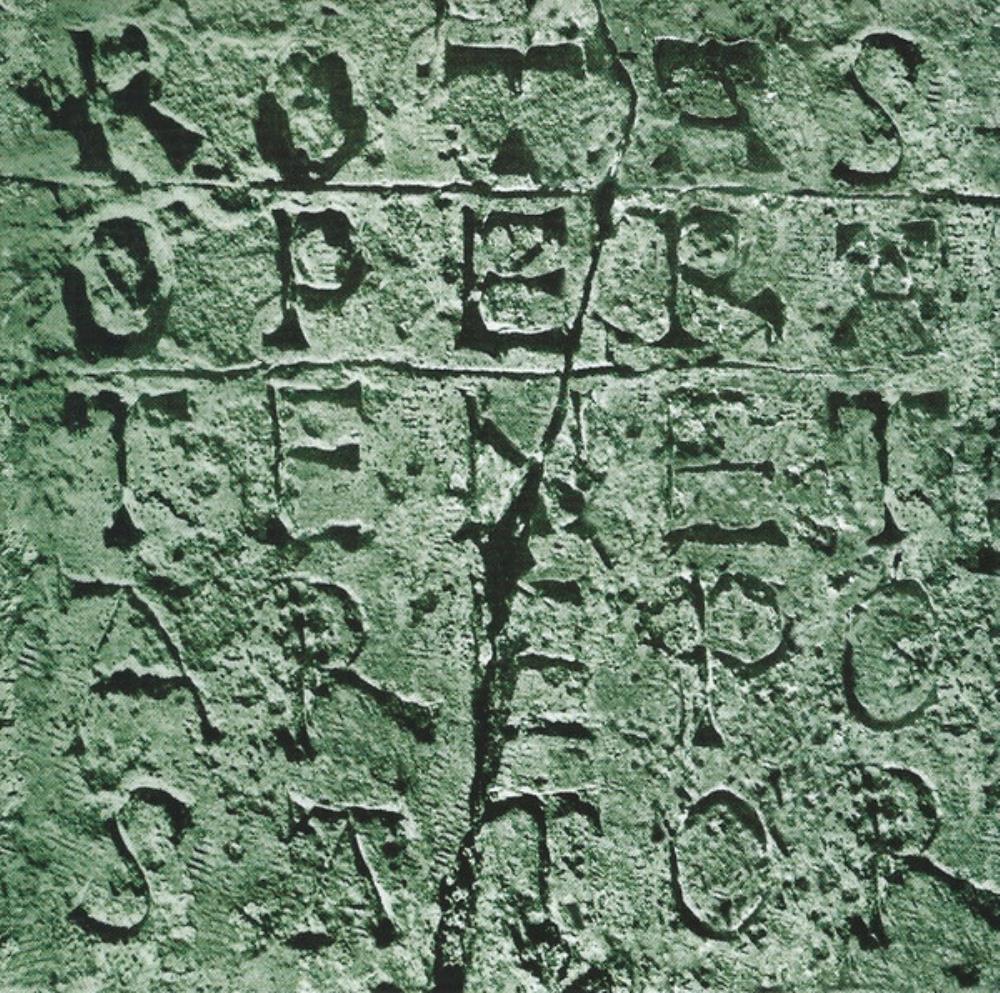 ROTAS
OPERA
TENET
AREPO
SATOR